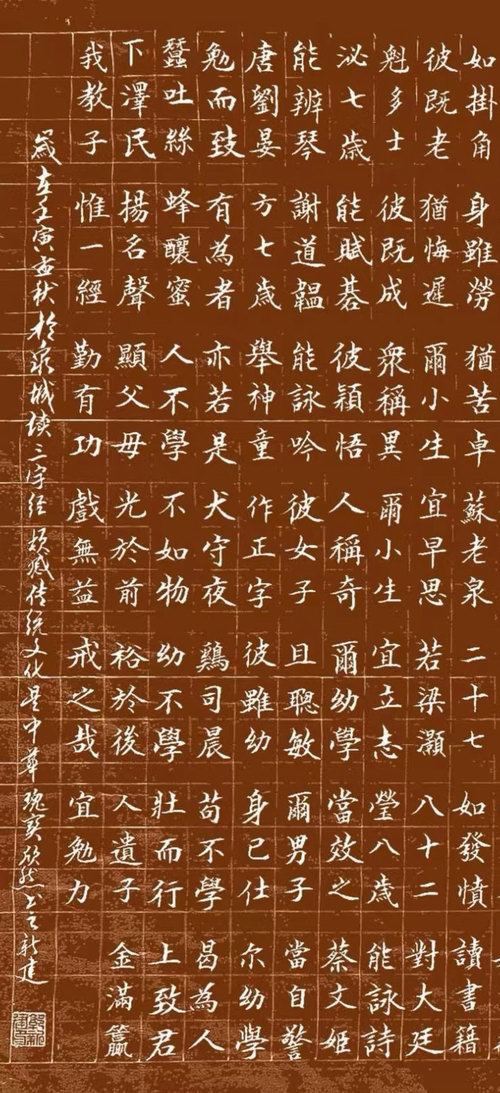 如掛角 身雖勞 猶苦卓 蘇老泉 二十七 如發憤 讀書籍
彼既老 猶悔遲 爾小生 宜早思 若梁灝 八十二 對大廷
魁多士 彼既成 衆稱異 爾小生 宜立志 瑩八歲 能詠詩
泌七歲 能賦碁 彼穎悟 人稱奇 爾幼學 當效之 蔡文姬
能辨琴 謝道韞 能詠吟 彼女子 且聰敏 爾男子 當自警
唐劉晏 方七歲 舉神童 作正字 彼雖幼 身已仕 尔幼學
勉而致 有為者 亦若是 犬守夜 鷄司晨 苟不學 曷為人
蠶吐絲 蜂釀蜜 人不學 不如物 幼不學 壯而行 上致君
下澤民 揚名聲 顯父母 光於前 裕於後 人遺子 金滿籯
我教子 惟一經 勤有功 戲無益 戒之哉 宜勉力
歲在壬寅孟秋於泉城读三字经 颇感传统文化是中華瑰寶欣然书之新建